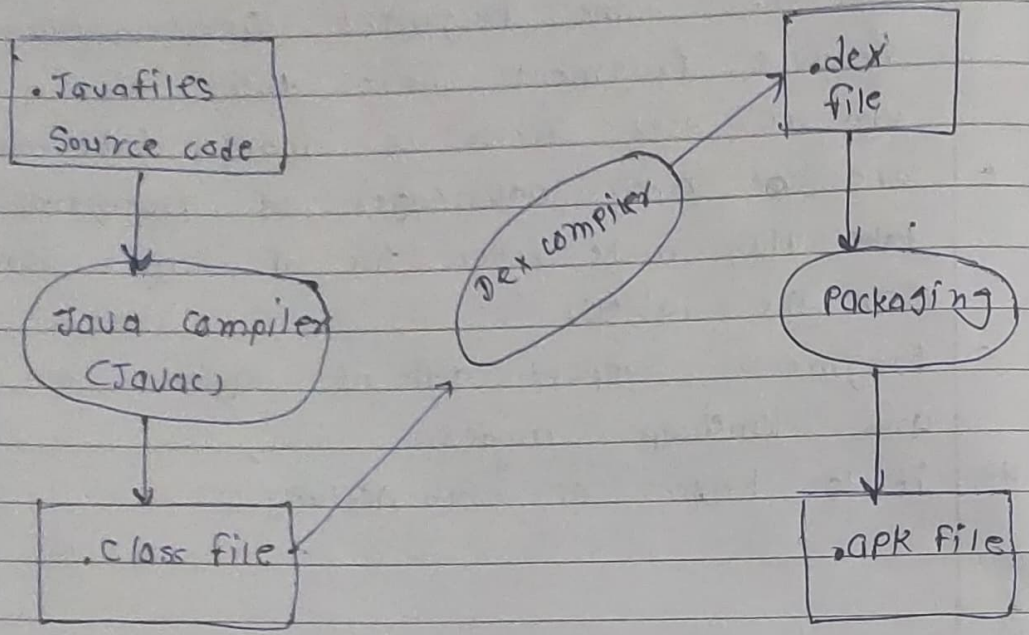 .Javafiles
Source code
Java compiler
(Javac)
.class file
Dex compiler
.dex
file
Packaging
.apk file